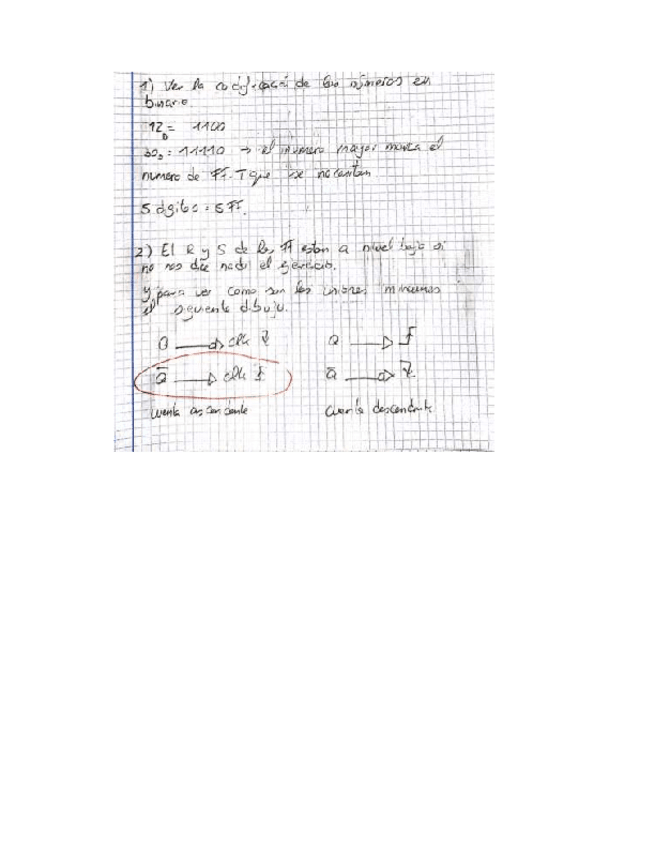 1) Ver la codificación de los números en
binario
12D = 1100
30D = 11110 → el número mayor marca el
numero de FF-T que se necesitan
5 dgitos = 5 FF.
2) El R y S de los FF estan a nivel bajo si
no nos dice nada el ejercicio.
y para ver como son las uniones miramos
el siguiente dibujo.
Q clk Q
Q̅ clk Q̅
cuenta ascendente cuenta descendente